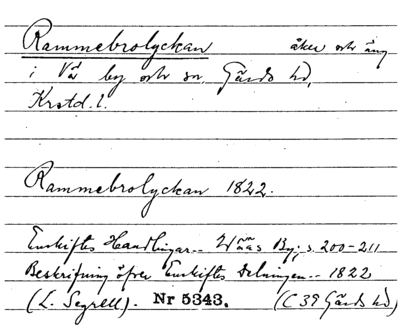 Rammebrolyckan åker och äng
i Vä by och sn. Gärds hd,
Krstd. l.
Rammebrolyckan 1822.
Enskiftes Handlingar.. Wä By; s. 200-211
Beskrifning öfver Enskiftes Delningen.. 1822
(L. Segrell). Nr 5343. (C 39 Gärds hd)